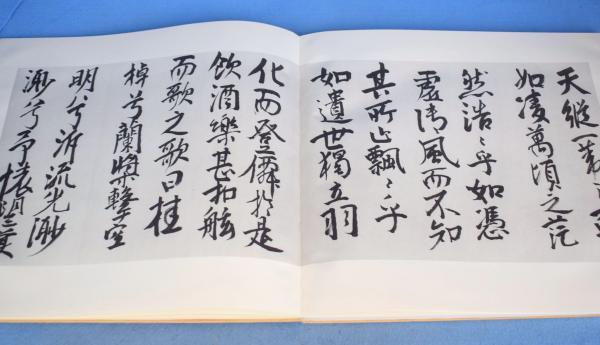 天縱一葦
如凌萬頃之茫
然浩〻乎如憑
虛御風而不知
其所止飄〻乎
如遺世獨立羽
化而登僊於是
飲酒樂甚扣舷
而歌之歌曰桂
棹兮蘭槳擊空
明兮泝流光渺
渺兮予懷望美